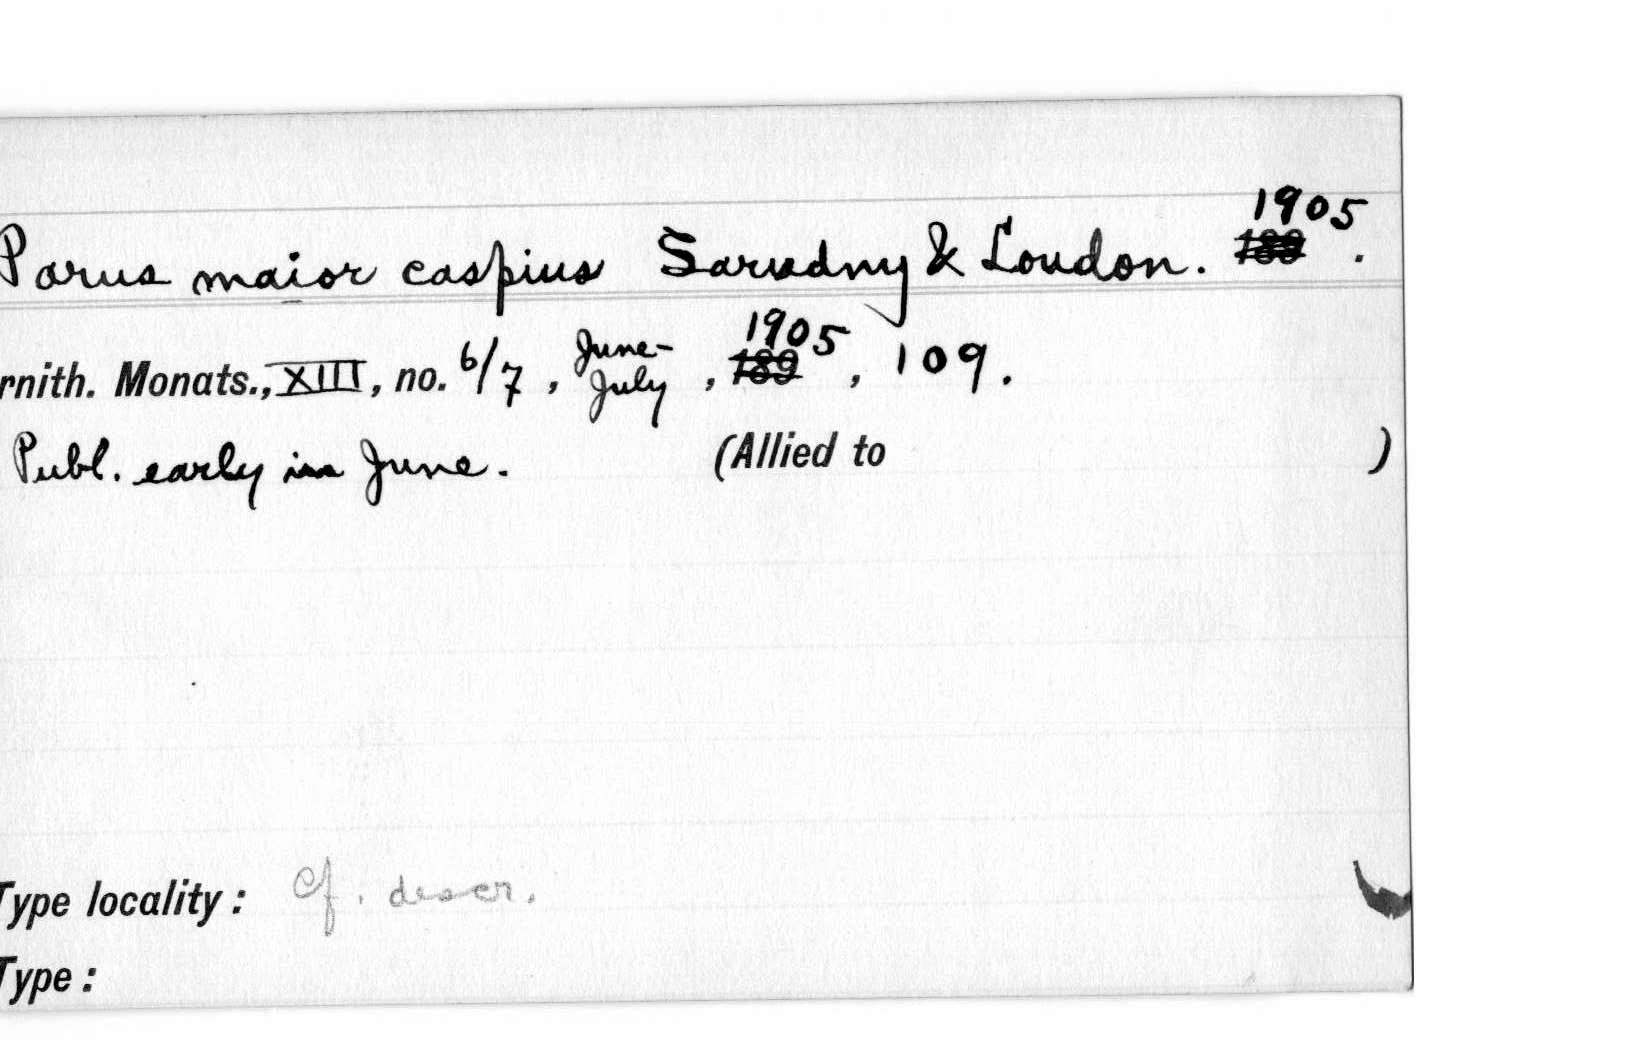 Parus maior caspius Sarudny & Loudon. 1905.
rnith. Monats., XIII, no. 6/7, June-July, 1905, 109.
Publ. early in June. (Allied to )
Type locality: Cf. descr.
Type: